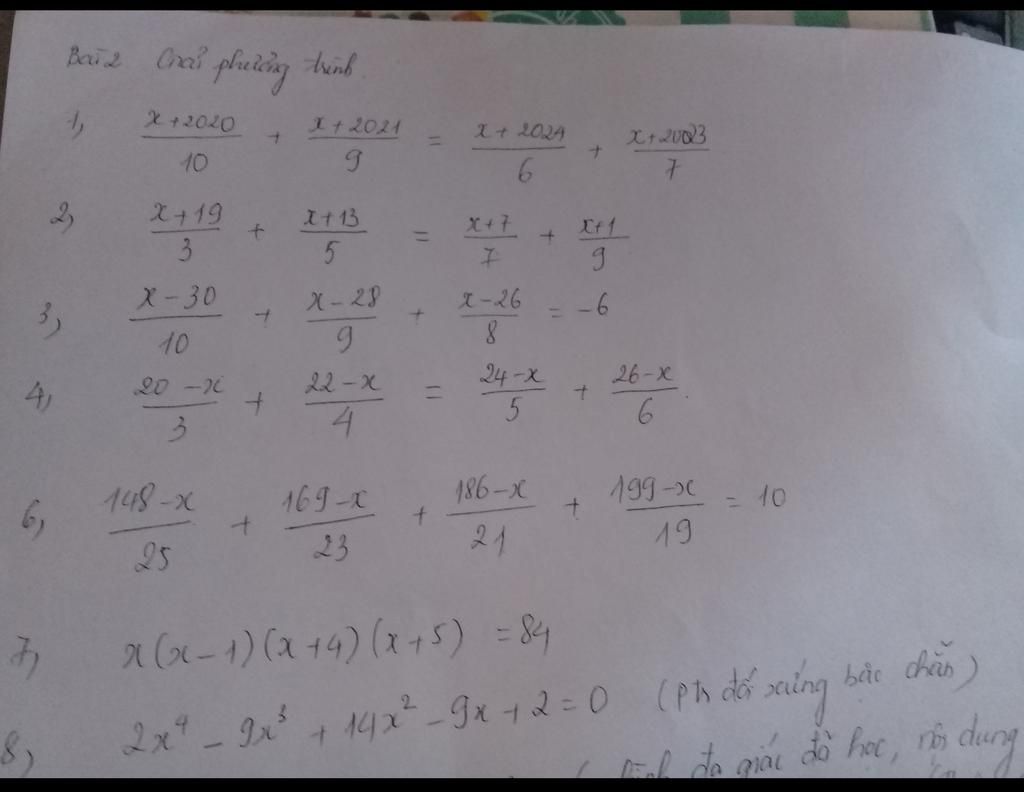 Bài 2 Giải phương trình.
1, (x+2020)/10 + (x+2021)/9 = (x+2024)/6 + (x+2023)/7
2, (x+19)/3 + (x+13)/5 = (x+7)/7 + (x+1)/9
3, (x-30)/10 + (x-28)/9 + (x-26)/8 = -6
4, (20-x)/3 + (22-x)/4 = (24-x)/5 + (26-x)/6.
6, (148-x)/25 + (169-x)/23 + (186-x)/21 + (199-x)/19 = 10
7, x(x-1)(x+4)(x+5) = 84
8, 2x⁴ - 9x³ + 14x² - 9x + 2 = 0 (Pth đối xứng bậc chẵn)
đa giác đã học, nội dung